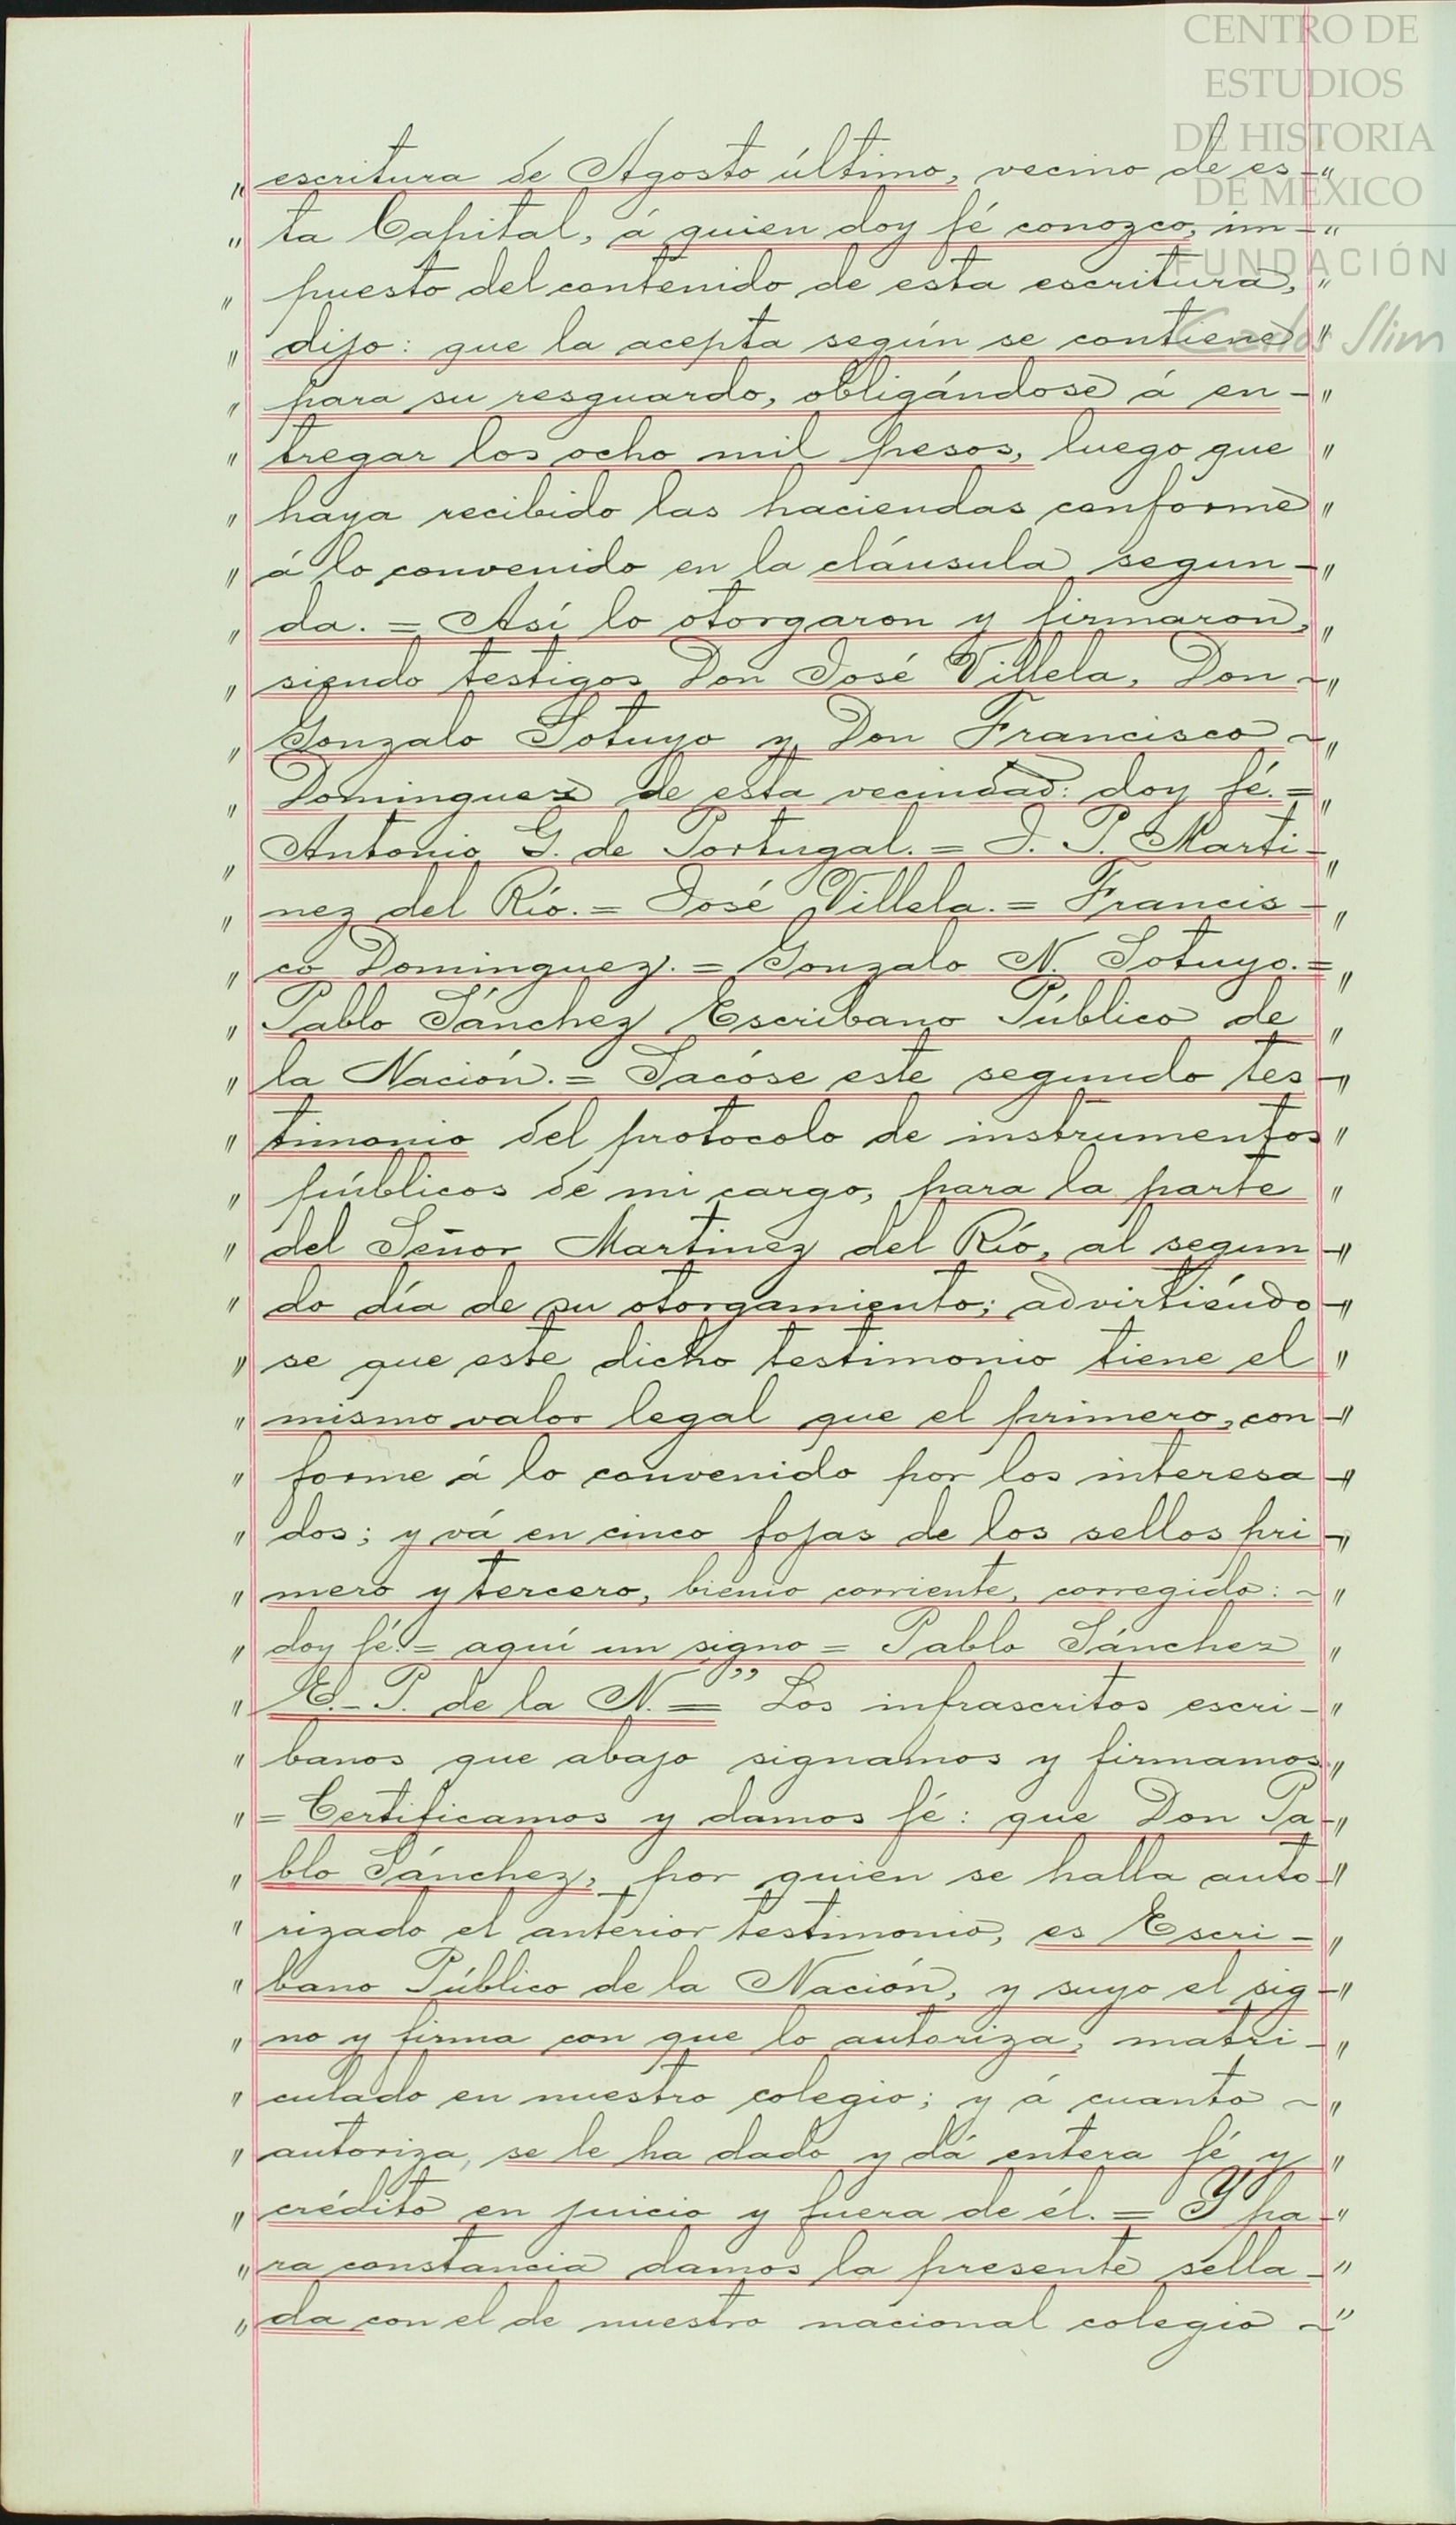 CENTRO DE
ESTUDIOS
DE HISTORIA
DE MÉXICO
FUNDACIÓN
Carlos Slim
„ escritura de Agosto último, vecino de es-"
„ ta Capital, á quien doy fé conozco, im-"
„ puesto del contenido de esta escritura, "
„ dijo: que la acepta según se contiene "
„ para su resguardo, obligándose á en-"
„ tregar los ocho mil pesos, luego que "
„ haya recibido las haciendas conforme "
„ á lo convenido en la cláusula segun-"
„ da. = Así lo otorgaron y firmaron, "
„ siendo testigos Don José Villela, Don ~"
„ Gonzalo Sotuyo y Don Francisco ~"
„ Dominguez de esta vecindad: doy fé. = "
„ Antonio G. de Portugal. = J. P. Marti-"
„ nez del Río. = José Villela. = Francis-"
„ co Dominguez. = Gonzalo N. Sotuyo. = "
„ Pablo Sánchez Escribano Público de "
„ la Nación. = Sacóse este segundo tes-"
„ timonio del protocolo de instrumentos "
„ públicos de mi cargo, para la parte "
„ del Señor Martinez del Río, al segun-"
„ do día de su otorgamiento; advirtiéndo-"
„ se que este dicho testimonio tiene el "
„ mismo valor legal que el primero, con-"
„ forme á lo convenido por los interesa-"
„ dos; y vá en cinco fojas de los sellos pri-"
„ mero y tercero, bienio corriente, corregido: ~"
„ doy fé. = aquí un signo = Pablo Sánchez "
„ E. P. de la N. = " Los infrascritos escri-"
„ banos que abajo signamos y firmamos "
„ = Certificamos y damos fé: que Don Pa-"
„ blo Sánchez, por quien se halla auto-"
„ rizado el anterior testimonio, es Escri-"
„ bano Público de la Nación, y suyo el sig-"
„ no y firma con que lo autoriza, matri-"
„ culado en nuestro colegio; y á cuanto ~"
„ autoriza, se le ha dado y dá entera fé y "
„ crédito en juicio y fuera de él. = Y pa-"
„ ra constancia damos la presente sella-"
„ da con el de nuestro nacional colegio ~"